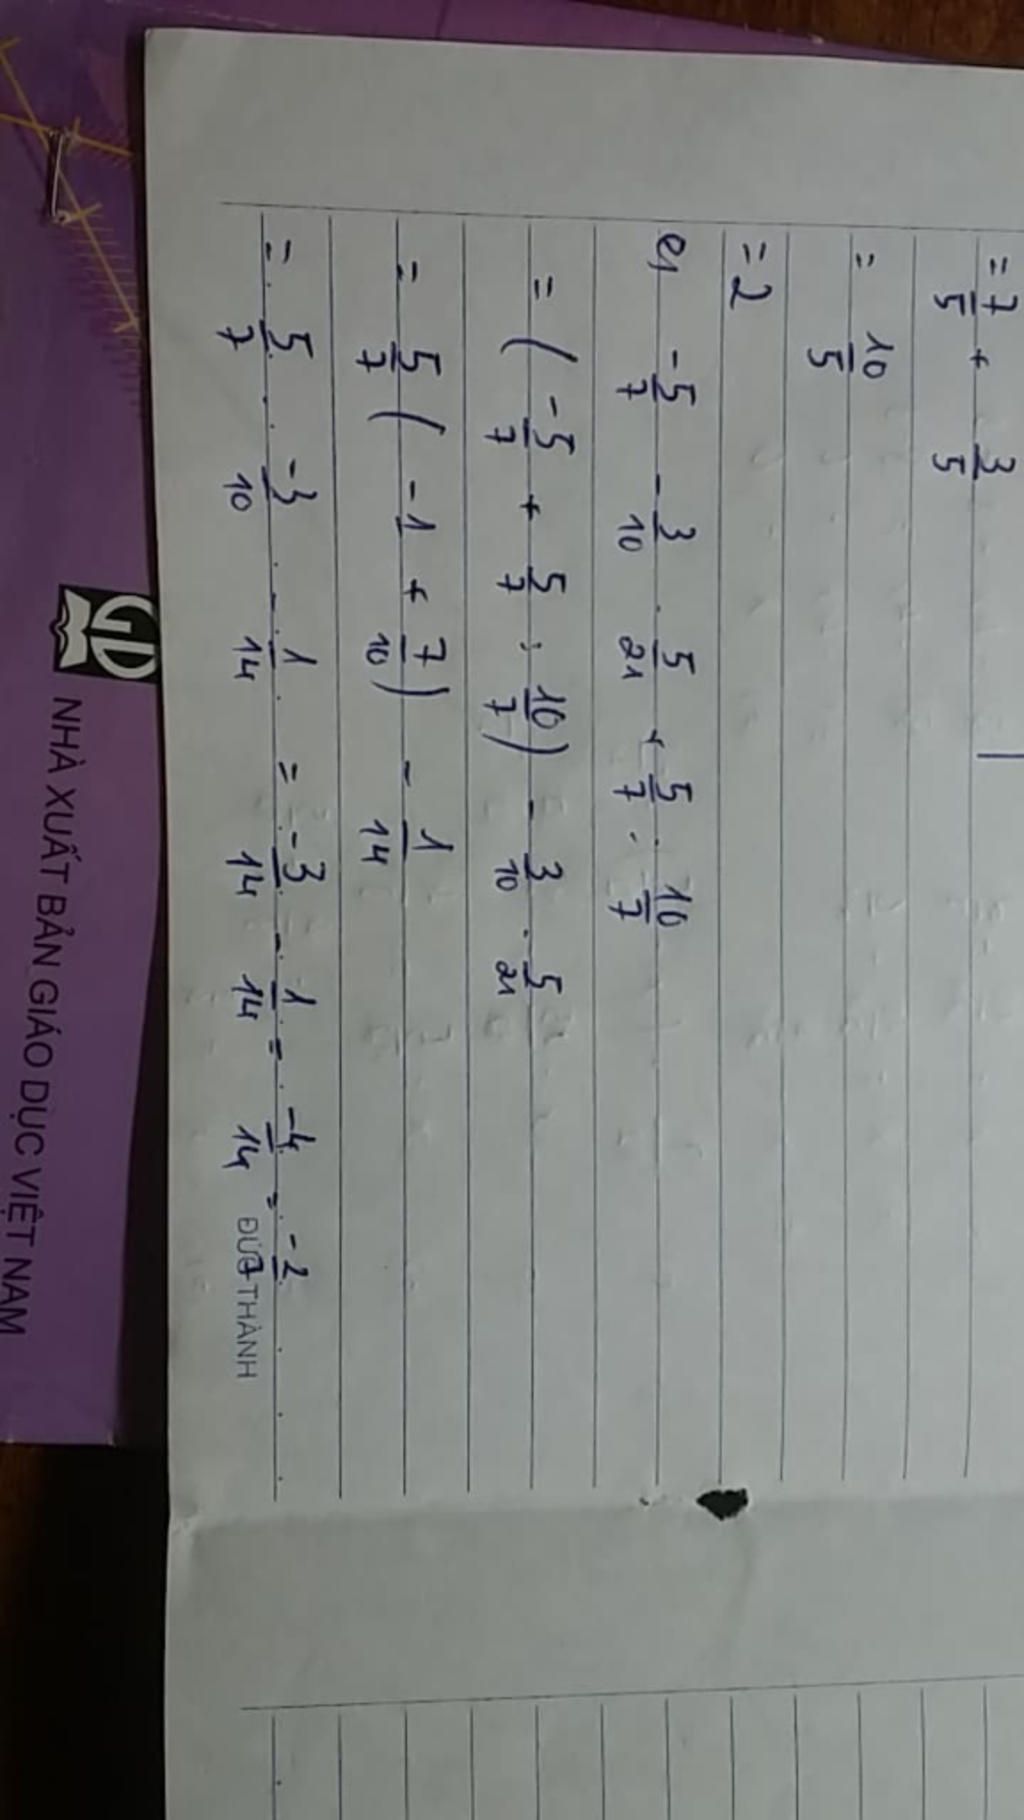 = 7/5 + 3/5
= 10/5
= 2
e, -5/7 - 3/10 . 5/21 + 5/7 : 10/7
= ( -5/7 + 5/7 : 10/7 ) - 3/10 . 5/21
= 5/7 ( -1 + 7/10 ) - 1/14
= 5/7 . -3/10 - 1/14 = -3/14 - 1/14 = -4/14 = -2/7
ĐỨC THÀNH
GD
NHÀ XUẤT BẢN GIÁO DỤC VIỆT NAM